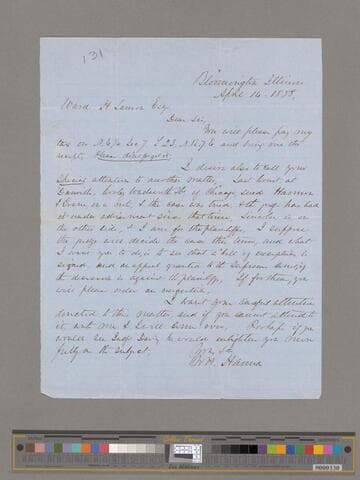 131
Bloomington Illinois
April 14. 1858
Ward H Lamon Esq
Dear Sir,
You will please pay my
tax on N. E/4 Sec 7 T 23, N. R. 7 E and send me the
receipt, Please don't forget it.
I desire also to call your
Special attention to another matter. Last Court at
Danville, & Co of Chicago sued Harmon
on a note, & the case was tried & the judge has had
it under advisement since that time. Lincoln is on
the other side, & I am for the plaintiffs. I suppose
the judge will decide the case this term, and what
I want you to do, is to see that a bill of exception is
signed, and an appeal granted to the Supreme Court, if
the decision is against the plaintiffs. If for them, you
will please order an execution.
I want your careful attention
directed to this matter, and if you cannot attend to
it, write me & I will come over. Perhaps if you
would see Judge Davis, he would enlighten you more
fully on the subject.
Yours &c
W. H. Hanna